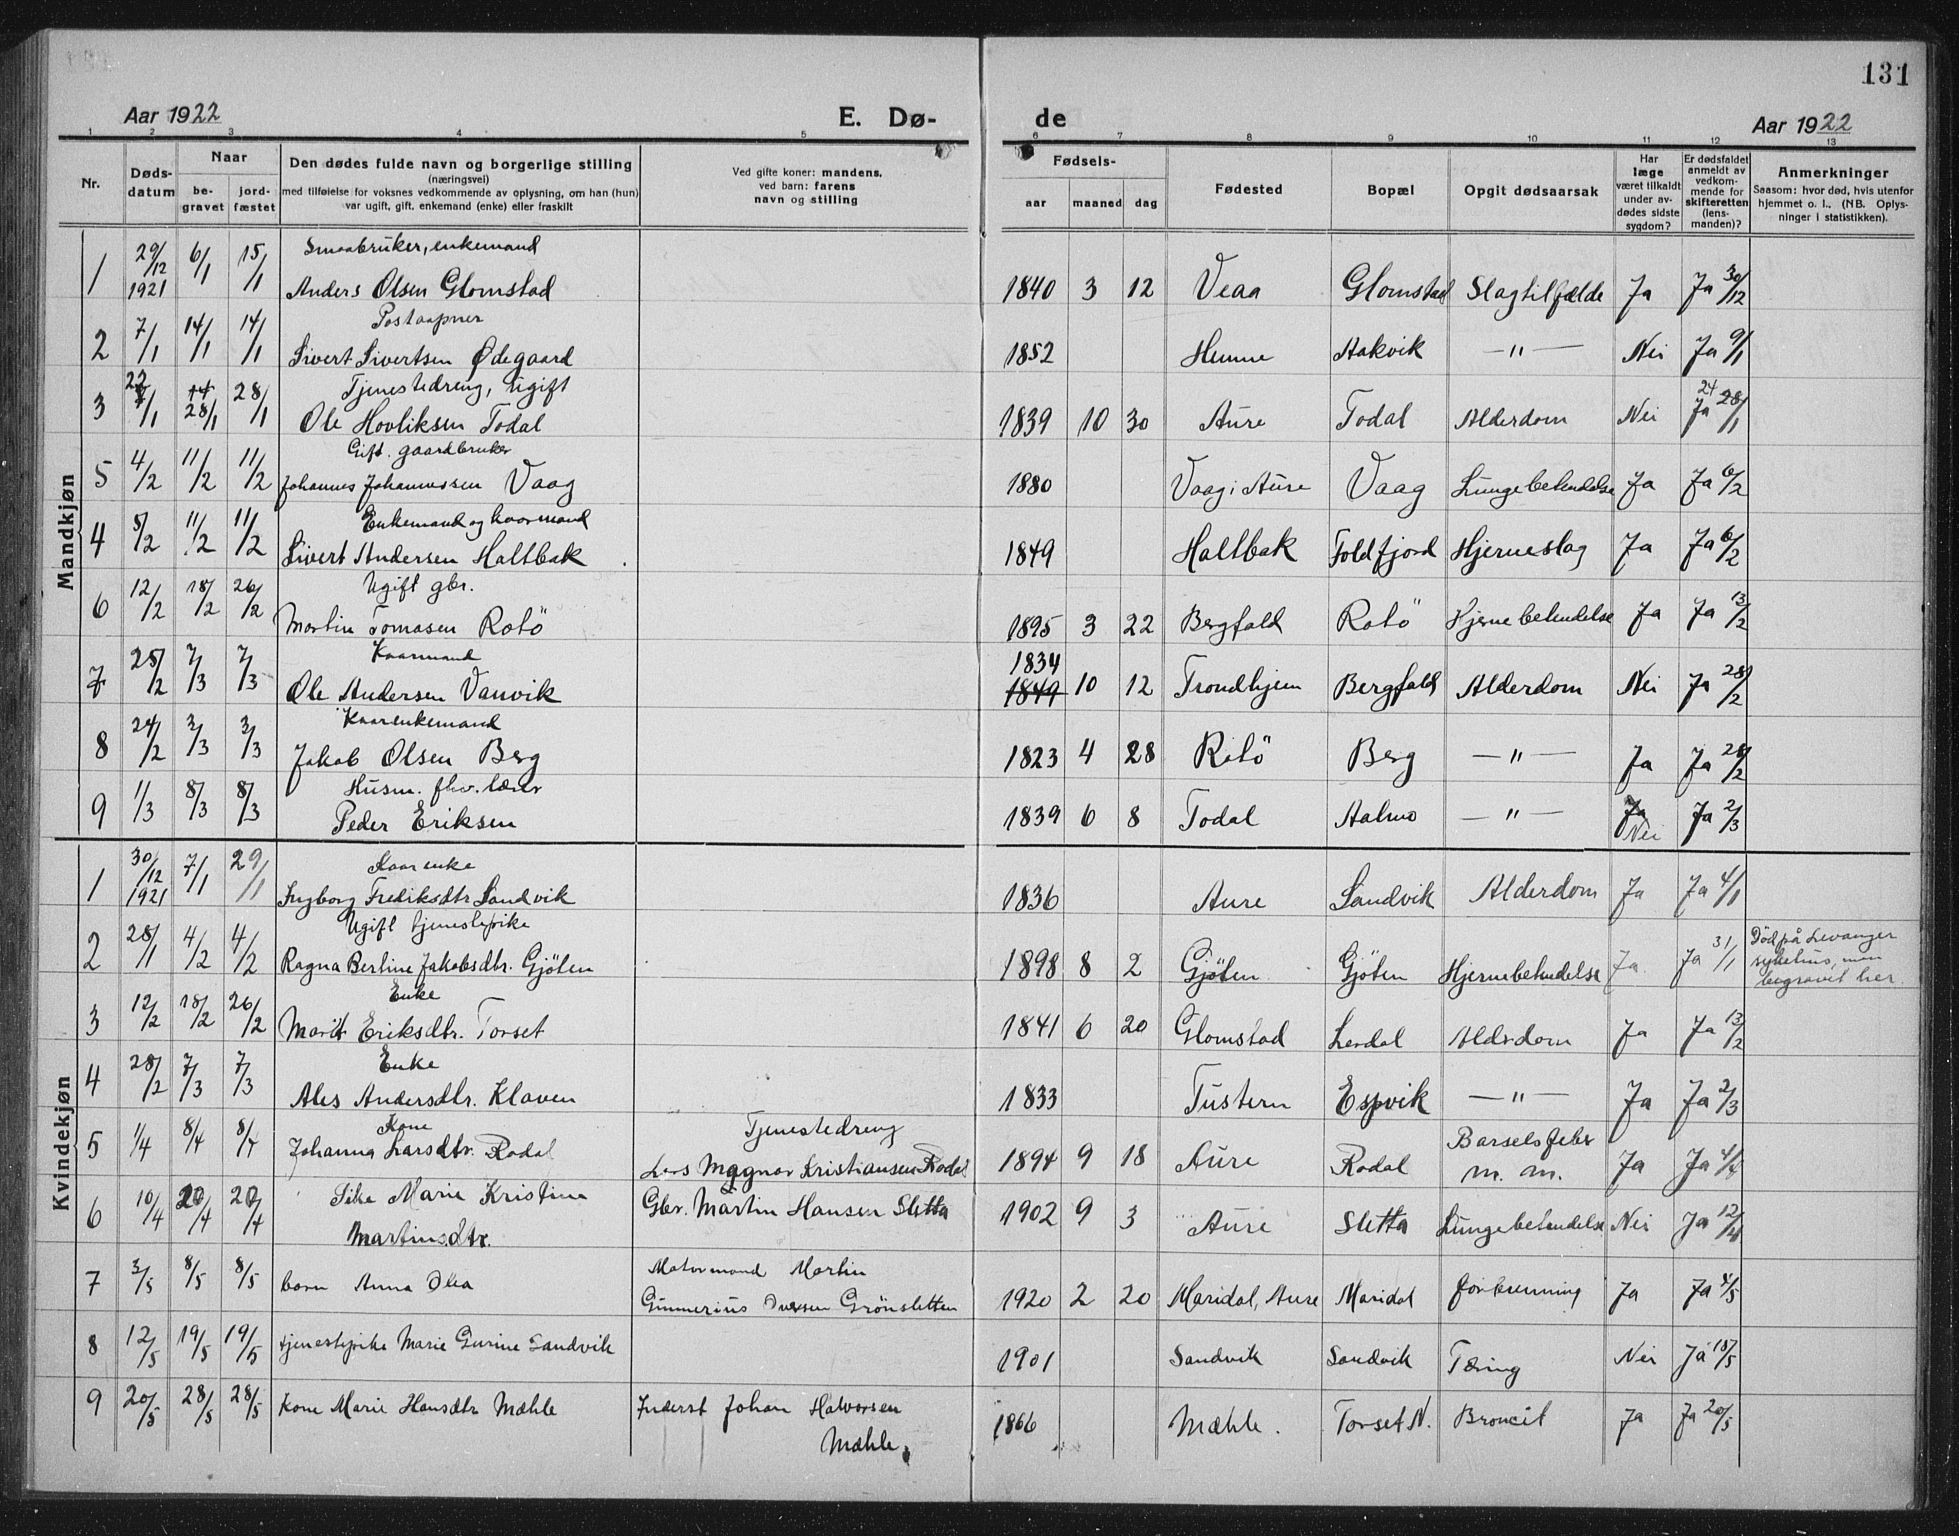 131
Aar 1922 E. Dø- de Aar 1922
1 2 3 4 5 6 7 8 9 10 11 12 13
Nr. Døds-datum Naar be-gravet jord-fæstet Den dødes fulde navn og borgerlige stilling (næringsvei) med tilføielse for voksnes vedkommende av oplysning, om han (hun) var ugift, gift, enkemand (enke) eller fraskilt Ved gifte koner: mandens, ved barn: farens navn og stilling Fødsels- aar maaned dag Fødested Bopæl Opgit dødsaarsak Har læge været tilkaldt under av-dødes sidste sygdom? Er dødsfaldet anmeldt av vedkom-mende for skifteretten (lens-manden)? Anmerkninger Saasom: hvor død, hvis utenfor hjemmet o. l., (NB. Oplys-ninger i statistikken).
Mandkjøn
Smaabruker, enkemand
1 29/12 1921 6/1 15/1 Anders Olsen Glomstad 1840 3 12 Veaa Glomstad Slagtilfælde Ja Ja 30/12
Postaapner
2 7/1 14/1 14/1 Sivert Sivertsen Ødegaard 1852 Hemne Aakvik —"— Nei Ja 9/1
Tjenestedreng, ugift
3 22/1 28/1 28/1 Ole Hovliksen Todal 1839 10 30 Aure Todal Alderdom Nei Ja 24 28/1
Gift. gaardbruker
5 4/2 11/2 11/2 Johannes Johannessen Vaag 1880 Vaag i Aure Vaag Lungebetendelse Ja Ja 6/2
Enkemand og kaarmand
4 5/2 11/2 11/2 Sivert Andersen Haltbak 1849 Haltbak Foldfjord Hjerneslag Ja Ja 6/2
Ugift gbr.
6 12/2 18/2 26/2 Martin Tomasen Rotö 1895 3 22 Bergfald Rotö Hjernebetendelse Ja Ja 13/2
Kaarmand 1834
7 25/2 7/3 7/3 Ole Andersen Vanvik 1849 10 12 Trondhjem Bergfald Alderdom Nei Ja 28/2
Kaarenkemand
8 24/2 3/3 3/3 Jakob Olsen Berg 1823 4 28 Rotö Berg —"— Ja Ja 28/2
Husm. fhv. lærer
9 1/3 8/3 8/3 Peder Eriksen 1839 6 8 Todal Aalmo —"— Ja Nei Ja 2/3
Kvindekjøn
Kaarenke
1 30/12 1921 7/1 29/1 Ingborg Frediksdtr Sandvik 1836 Aure Sandvik Alderdom Ja Ja 4/1
Ugift tjenestepike
2 28/1 4/2 4/2 Ragna Bertine Jakobsdtr. Gjöten 1898 8 2 Gjöten Gjöten Hjernebetendelse Ja Ja 31/1 Död på Levanger sykehus, men begravet her.
Enke
3 12/2 18/2 26/2 Marit Eriksdtr. Torset 1841 6 20 Glomstad Lerdal Alderdom Ja Ja 13/2
Enke
4 28/2 7/3 7/3 Ales Andersdtr. Klaven 1833 Tustern Espvik —"— Ja Ja 2/3
Kone Tjenestedreng Barselsfeber
5 1/4 8/4 8/4 Johanna Larsdtr. Rodal Lars Magnar Kristiansen Rodal 1894 9 18 Aure Rodal m. m. Ja Ja 4/4
6 10/4 20/4 20/4 Silke Marie Kristine Gbr. Martin Hansen Sletta 1902 9 3 Aure Sletta Lungebetendelse Nei Ja 12/4
Martinsdtr.
Motormand Martin
7 3/5 8/5 8/5 barn Anna Olea Gunnerius Iversen Grönsletten 1920 2 20 Maridal, Aure Maridal forbrenning Ja Ja 4/5
8 12/5 19/5 19/5 tjenestepike Marie Gurine Sandvik 1901 Sandvik Sandvik Tæring Nei Ja 15/5
9 20/5 28/5 28/5 Kone Marie Hansdtr Mæhle Inderst Johan Halvorsen 1866 Mæhle. Torset N. Broncit Ja Ja 20/5
Mæhle.